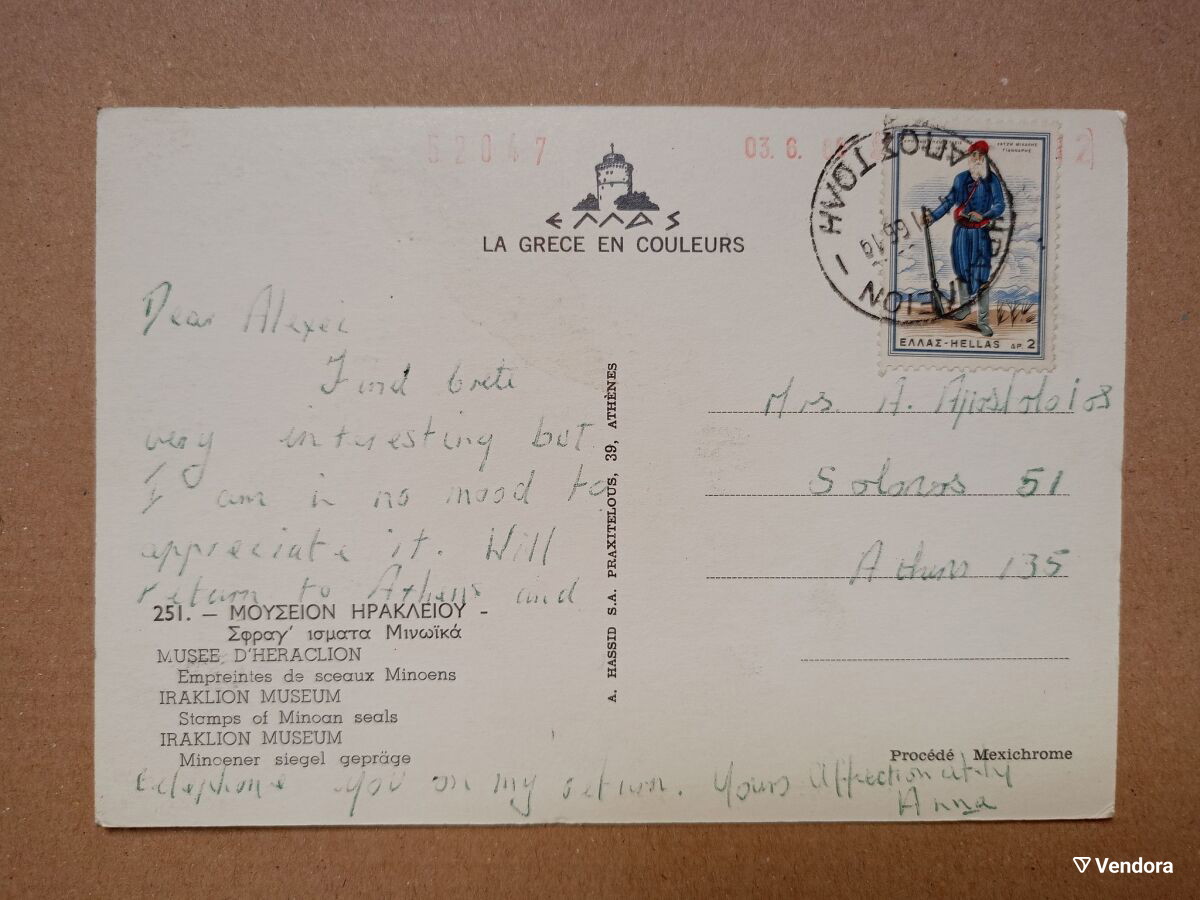 52047
03. 6.
ΕΛΛΑΣ
LA GRECE EN COULEURS
ΗΡΑΚΛΕΙΟΝ - ΑΠΟΣΤΟΛΗ
ΧΑΤΖΗ ΜΙΧΑΛΗΣ
ΓΙΑΝΝΑΡΗΣ
ΕΛΛΑΣ-HELLAS ΔΡ. 2
Dear
Find Crete
very interesting but
I am in no mood to
appreciate it. Will
return to Athens and
251. — ΜΟΥΣΕΙΟΝ ΗΡΑΚΛΕΙΟΥ -
Σφραγ' ισματα Μινωϊκά
MUSEE D'HERACLION
Empreintes de sceaux Minoens
IRAKLION MUSEUM
Stamps of Minoan seals
IRAKLION MUSEUM
Minoener siegel gepräge
telephone you on my return. Yours Affectionately
Anna
A. HASSID S.A. PRAXITELOUS, 39, ATHÈNES
Mrs. A.
Solonos 51
Athens 135
Procédé Mexichrome
Vendora